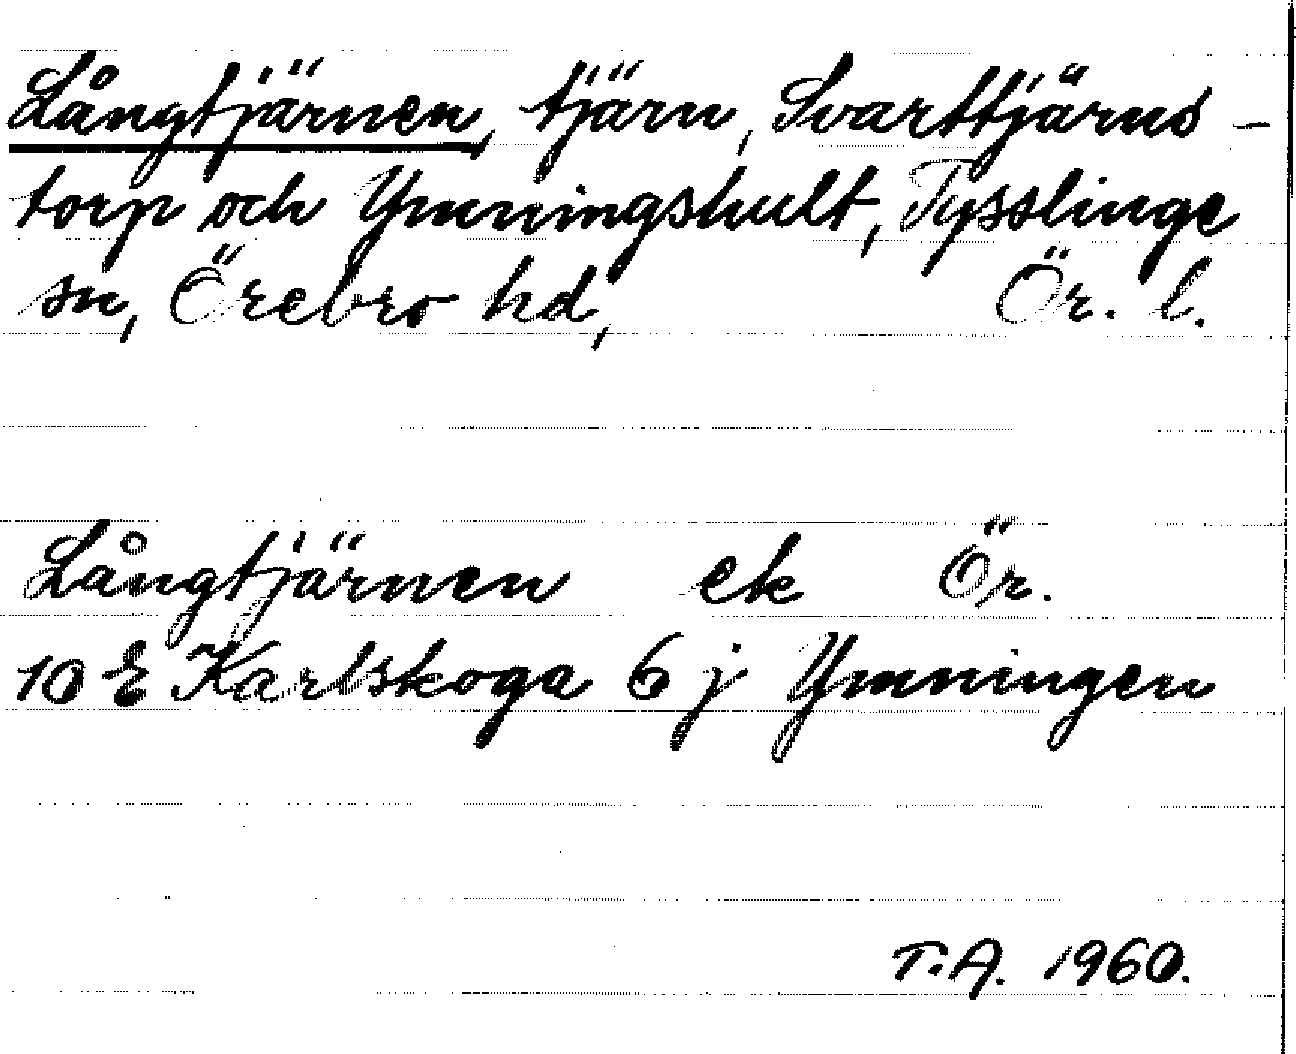 Långtjärnen, tjärn, Svarttjärns-
torp och Ymningshult, Tysslinge
sn, Örebro hd, Ör. l.
Långtjärnen ek Ör.
10 E Karlskoga 6 j Ymningen
T.A. 1960.